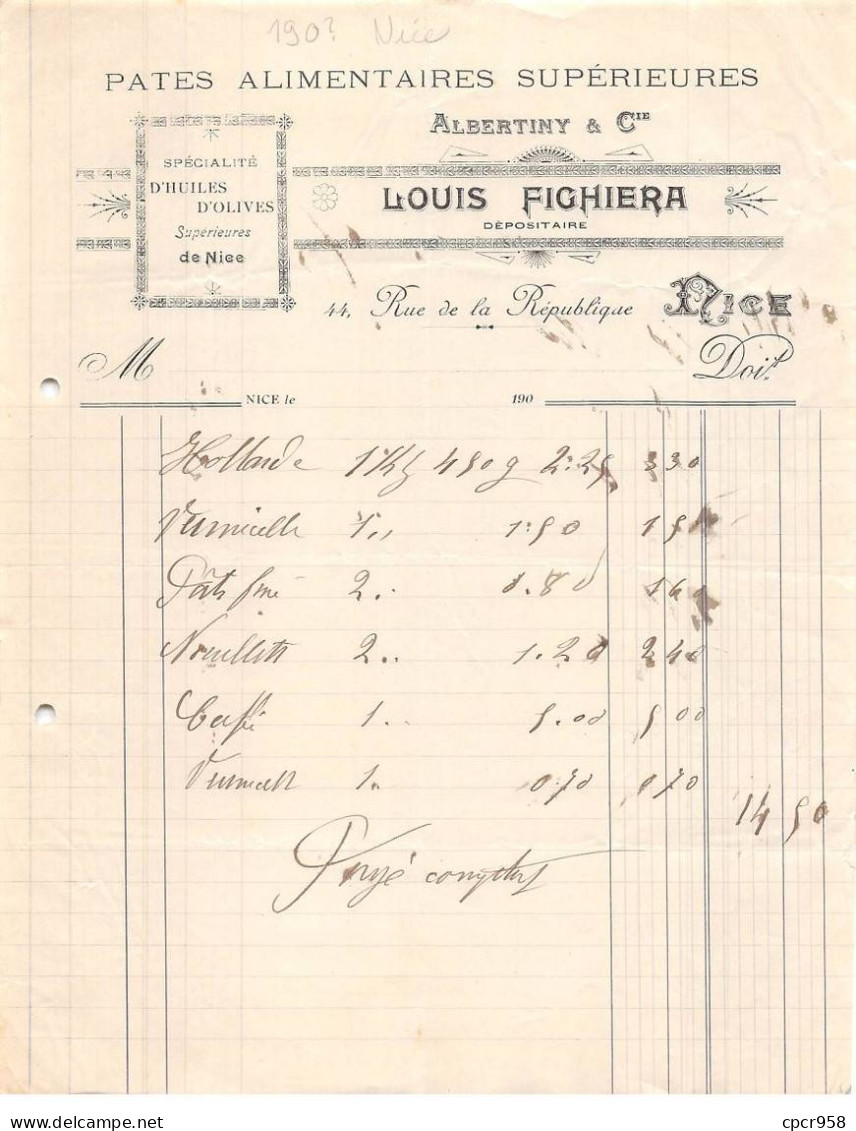 190? Nice
PATES ALIMENTAIRES SUPÉRIEURES
ALBERTINY & CIE
SPÉCIALITÉ
D'HUILES
D'OLIVES
Supérieures
de Nice
LOUIS FIGHIERA
DÉPOSITAIRE
44, Rue de la République NICE
M Doit
NICE le 190
Hollande 1 Kg 450 g 2.25 3 30
Vermicelle 1,, 1.50 1 5
Pâte fine 2.. 0.80 1 60
Nouillette 2.. 1.20 2 40
Café 1.. 5.00 5 00
Vermicelle 1. 0.70 0 70
14 50
Payé comptant
cpcr958